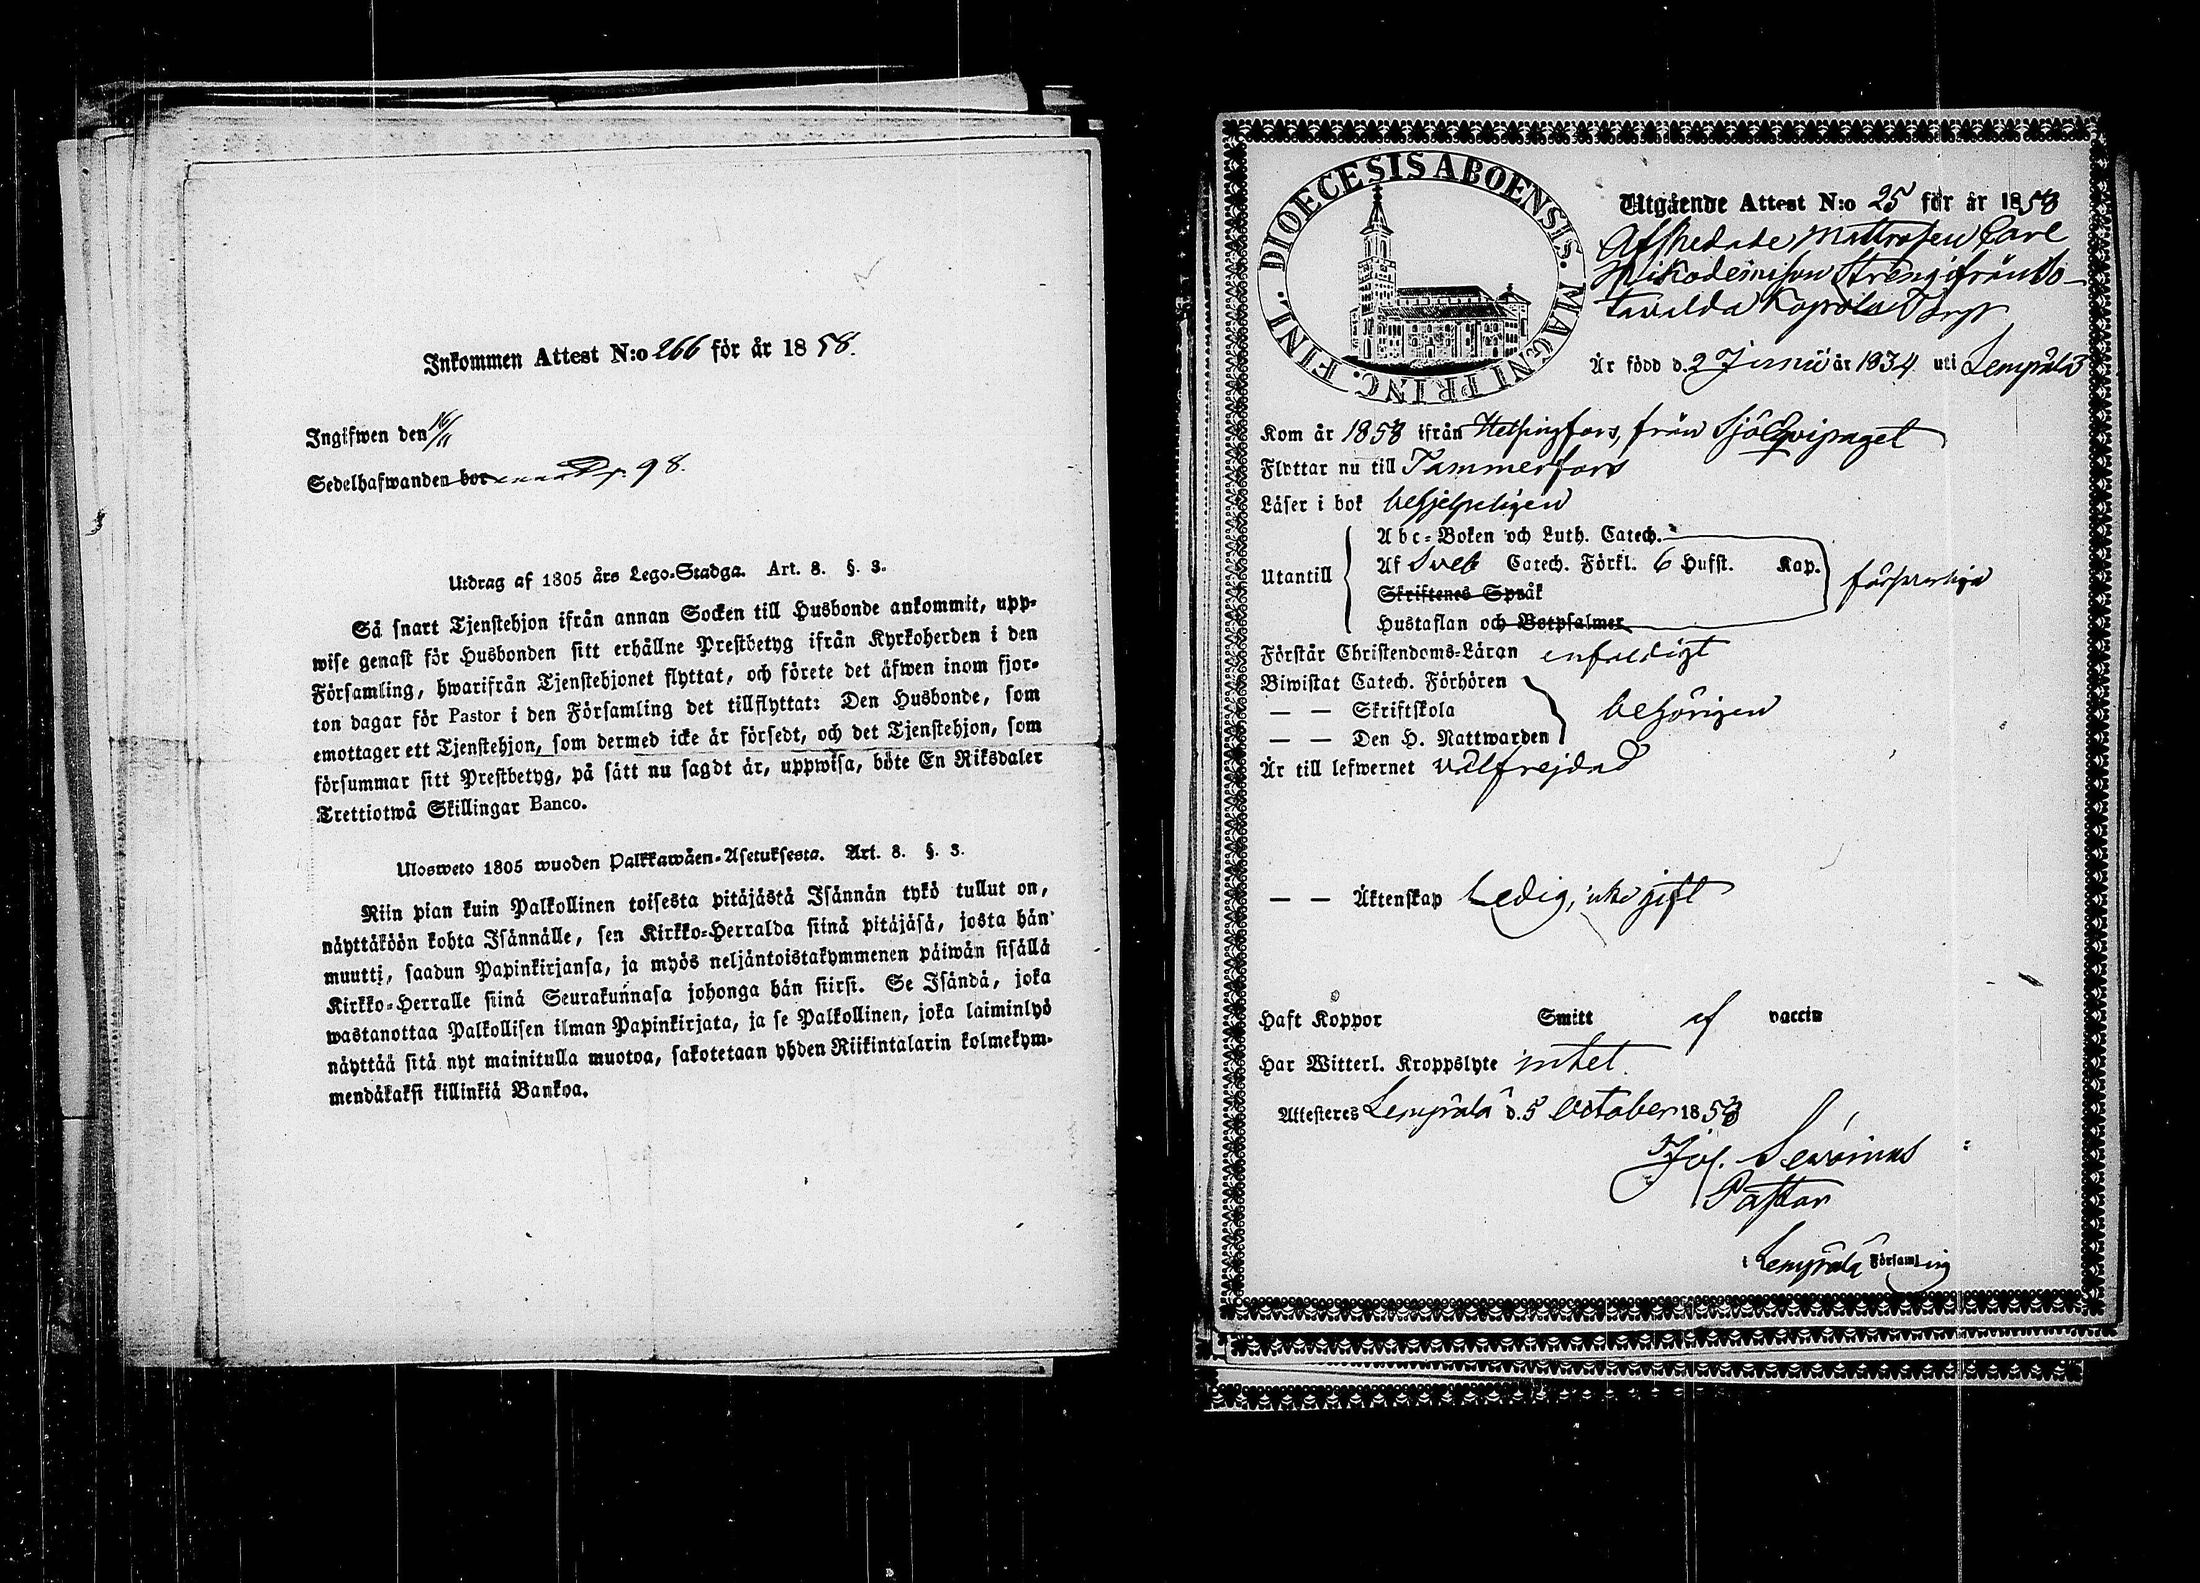 Inkommen Attest N:o 266 för år 1858.
Ingifwen den 16/11
Sedelhafwanden bor Pr. 98.
Utdrag af 1805 års Lego-Stadga. Art. 8. §. 3.
Så snart Tjenstehjon ifrån annan Socken till Husbonde ankommit, upp-
wise genast för Husbonden sitt erhållne Prestbetyg ifrån Kyrkoherden i den
Församling, hwarifrån Tjenstehjonet flyttat, och förete det äfwen inom fjor-
ton dagar för Pastor i den Församling det tillflyttat: Den Husbonde, som
emottager ett Tjenstehjon, som dermed icke är försedt, och det Tjenstehjon, som
försummar sitt Prestbetyg, på sätt nu sagdt är, uppwisa, böte En Riksdaler
Trettiotwå Skillingar Banco.
Ulosweto 1805 wuoden Palkkawäen-Asetuksesta. Art. 8. §. 3.
Niin pian kuin Palkollinen toisesta pitäjästä Isännän tykö tullut on,
näyttäköön kohta Isännälle, sen Kirkko-Herralda siinä pitäjäsä, josta hän
muutti, saadun Papinkirjansa, ja myös neljäntoistakymmenen päiwän sisällä
Kirkko-Herralle siinä Seurakunnasa johonga hän siirsi. Se Isändä, joka
wastanottaa Palkollisen ilman Papinkirjata, ja se Palkollinen, joka laiminlyö
näyttää sitä nyt mainitulla muotoa, sakotetaan yhden Riikintalarin kolmekym-
mendäkaksi killinkiä Bankoa.
DIOECESIS ABOENSIS. MAGNI PRINC. FINL.
Utgående Attest N:o 25 för år 1858
Afskedade Mattrosen Carl
Nikodemisson Streng ifrån Bo-
tavalda Kopsola Torp
Är född d. 2 Junii år 1834 uti Lempälä
Kom år 1858 ifrån Helsingfors, från SjöEqvipaget
Flyttar nu till Tammerfors
Läser i bok behjelpeligen
Utantill
Abc-Boken och Luth. Catech.
Af Sveb Catech. Förkl. 6 Hufst. Kap.
Skriftenes Språk
Hustaflan och Botpsalmer
försvarliga
Förstår Christendoms-Läran enfaldigt
Biwistat Catech. Förhören
— — Skriftskola
— — Den H. Nattwarden
behörigen
Är till lefwernet välfrejdad
— — Äktenskap Ledig, icke gift
Haft Koppor Smitt af vaccin
Har Witterl. Kroppslyte intet.
Attesteres Lempälä d. 5 October 1858
Pastor
i Lempälä Församling